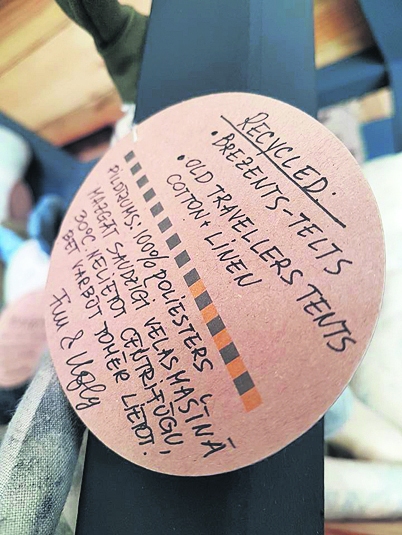 RECYCLED:
• BREZENTS-TELTS
• OLD TRAVELLERS TENTS
COTTON + LINEN
PILDĪJUMS: 100% POLIESTERS
MAZGĀT SAUDZĪGI VELAS MAŠĪNĀ
30°C. NELIETOT CENTRIFŪGU,
BET VARBŪT TOMĒR LIETOT.
Fun & Ugly